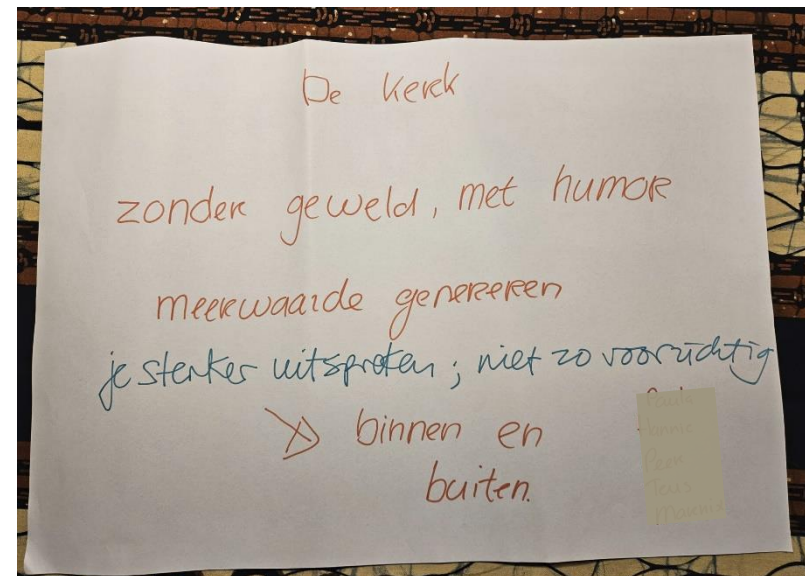 De kerk
zonder geweld, met humor
meerwaarde genereren
je sterker uitspreken; niet zo voorzichtig
binnen en
buiten.